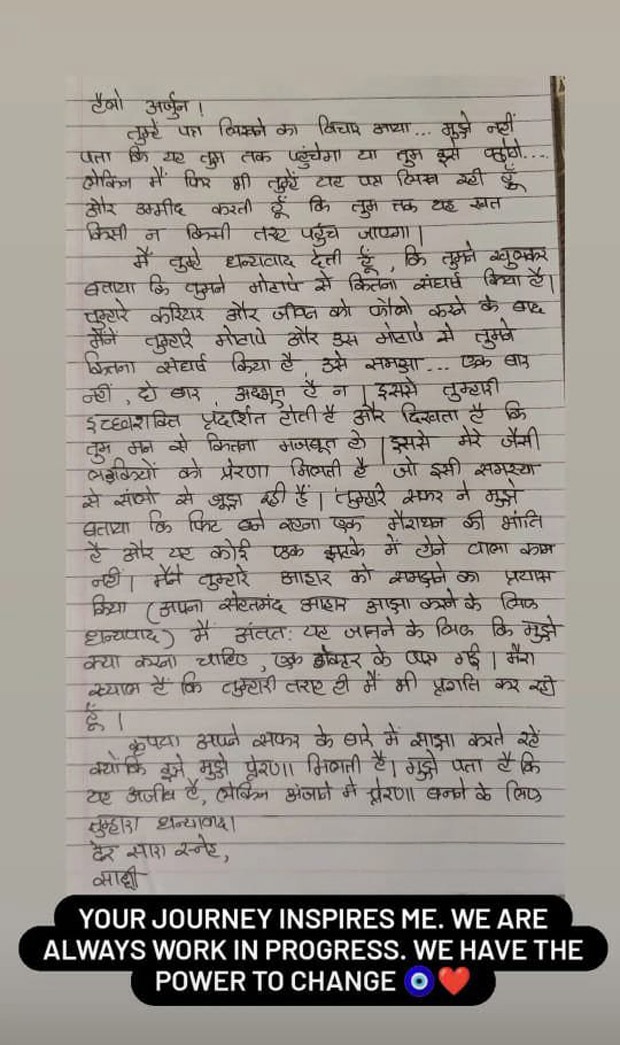 हैलो अर्जुन।
तुम्हें पत्र लिखने का विचार आया... मुझे नहीं
पता कि यह तुम तक पहुंचेगा या तुम इसे पढ़ोगे....
लेकिन मैं फिर भी तुम्हें यह पत्र लिख रही हूँ
और उम्मीद करती हूँ कि तुम तक यह खत
किसी न किसी तरह पहुँच जाएगा।
मैं तुम्हे धन्यवाद देती हूँ, कि तुमने खुलकर
बताया कि तुमने मोटापे से कितना संघर्ष किया है।
तुम्हारे करियर और जीवन को फॉलो करने के बाद
मैंने तुम्हारे मोटापे और उस मोटापे से तुमने
कितना संघर्ष किया है, उसे समझा... एक बार
नहीं, दो बार, अदभूत है न। इससे तुम्हारी
इच्छाशक्ति प्रदर्शित होती है और दिखता है कि
तुम मन से कितना मजबूत हो। इससे मेरे जैसी
लड़कियों को प्रेरणा मिलती है जो इसी समस्या
से सालों से जूझ रही हैं। तुम्हारे सफर ने मुझे
बताया कि फिट बने रहना एक मैराथन की भांति
है और यह कोई एक झटके में होने वाला काम
नहीं। मैंने तुम्हारे आहार को समझने का प्रयास
किया (अपना सेहतमंद आहार साझा करने के लिए
धन्यवाद) मैं अंतत: यह जानने के लिए कि मुझे
क्या करना चाहिए, एक डॉक्टर के पास गई। मेरा
ख्याल है कि तुम्हारी तरह ही मैं भी प्रगति कर रही
हूँ।
कृपया अपने सफर के बारे में साझा करते रहें
क्योंकि इससे मुझे प्रेरणा मिलती है। मुझे पता है कि
यह अजीब है, लेकिन अंजाने में प्रेरणा बनने के लिए
तुम्हारा धन्यवाद।
ढेर सारा स्नेह,
साध्वी
YOUR JOURNEY INSPIRES ME. WE ARE
ALWAYS WORK IN PROGRESS. WE HAVE THE
POWER TO CHANGE 🧿❤️